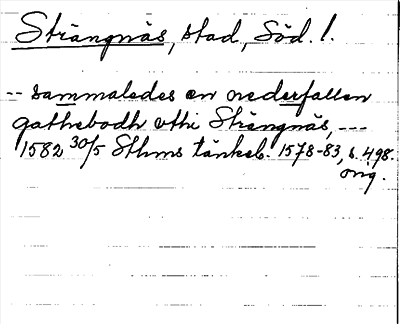 Strängnäs, stad, Söd. l.
-- sammaledes en nederfallen
gathebodh vthi Strengnäs, ---
1582 30/5 Sthms tänkeb. 1578-83, s. 498.
orig.